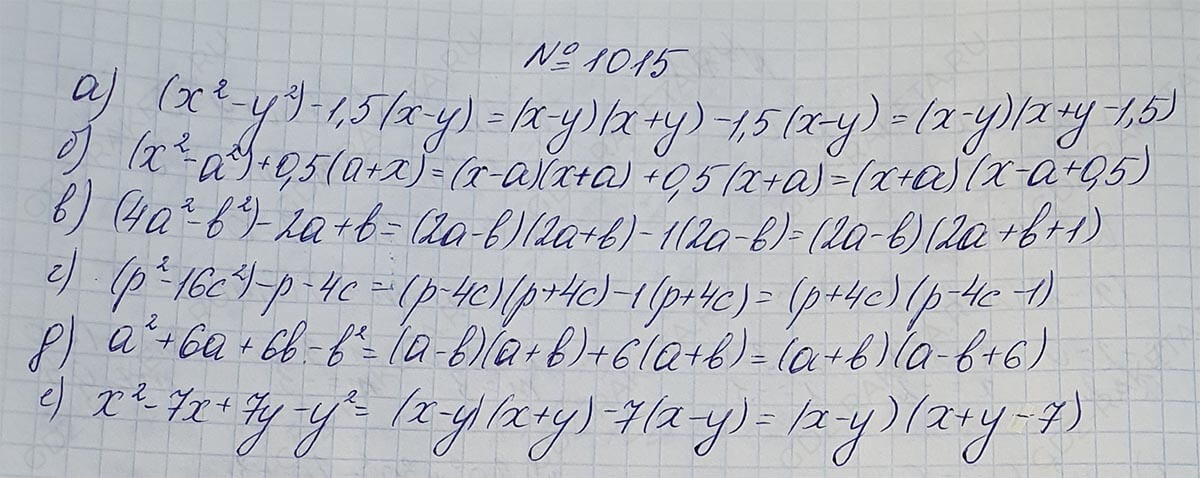 № 1015
а) (x² - y²) - 1,5 (x - y) = (x - y)(x + y) - 1,5 (x - y) = (x - y)(x + y - 1,5)
б) (x² - a²) + 0,5 (a + x) = (x - a)(x + a) + 0,5 (x + a) = (x + a) (x - a + 0,5)
в) (4a² - b²) - 2a + b = (2a - b)(2a + b) - 1(2a - b) = (2a - b)(2a + b + 1)
г) (p² - 16c²) - p - 4c = (p - 4c)(p + 4c) - 1(p + 4c) = (p + 4c)(p - 4c - 1)
д) a² + 6a + 6b - b² = (a - b)(a + b) + 6(a + b) = (a + b)(a - b + 6)
е) x² - 7x + 7y - y² = (x - y)(x + y) - 7(x - y) = (x - y)(x + y - 7)